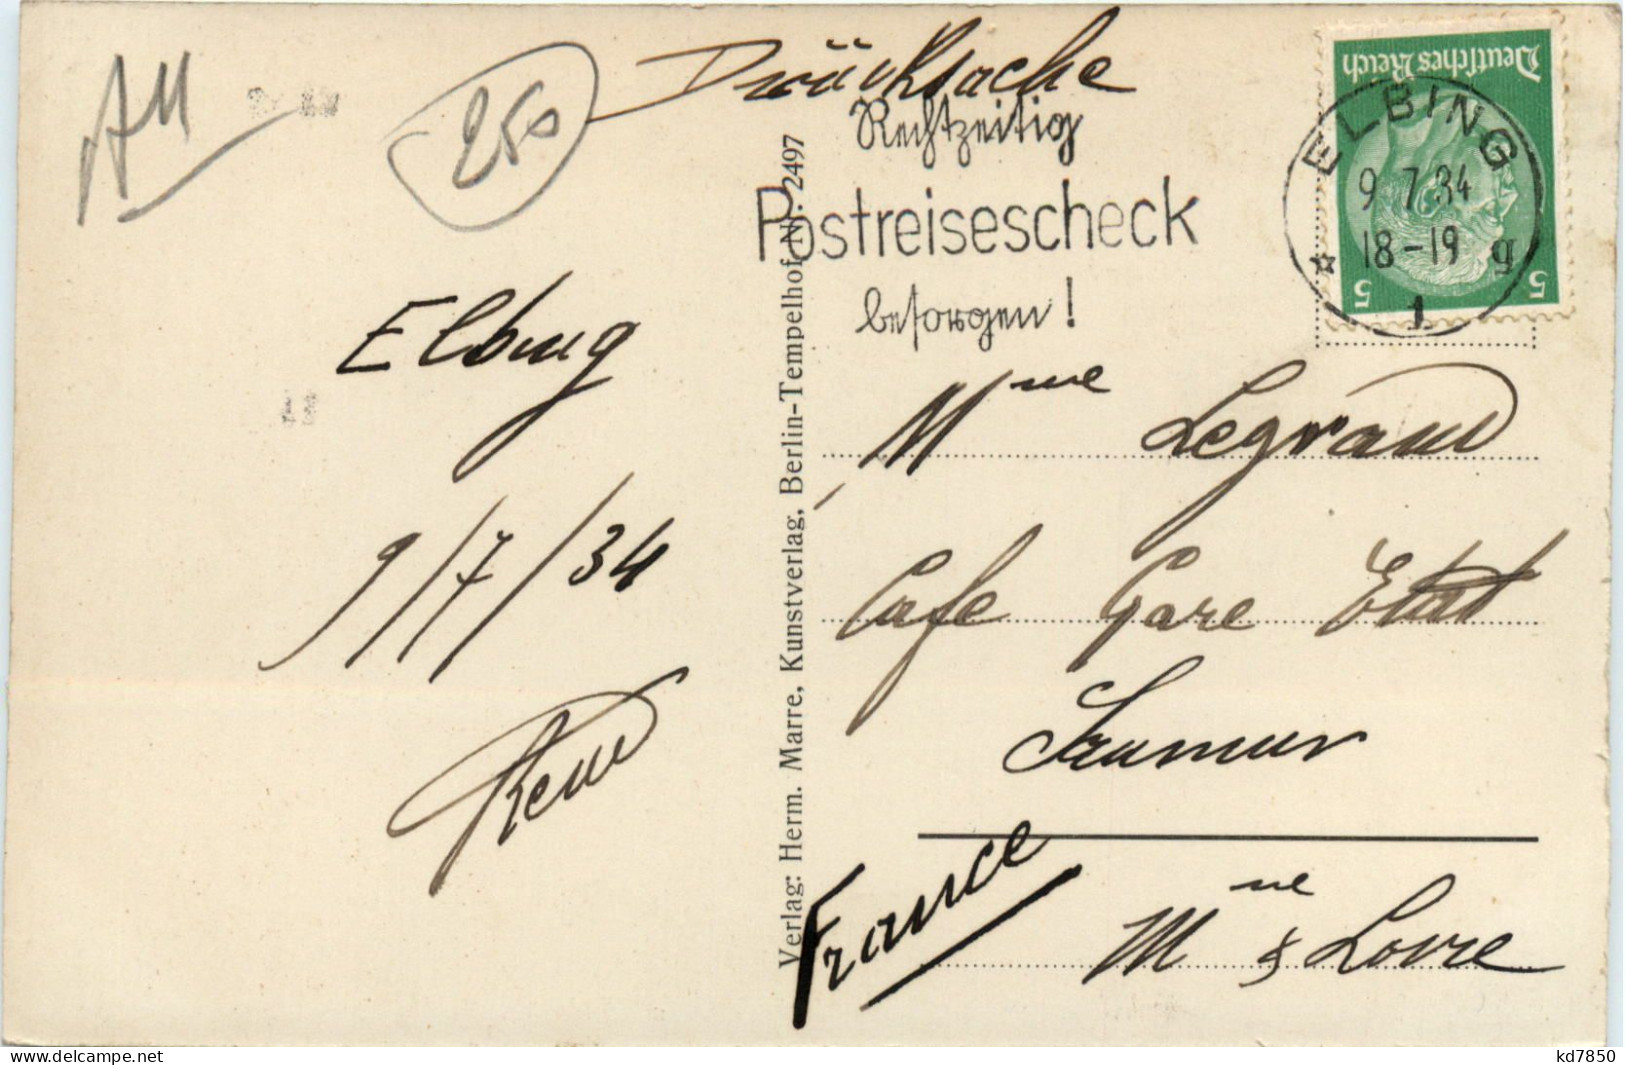 All
250
Drucksache
Rechtzeitig
Postreisescheck
besorgen!
Deutsches Reich
5
5
ELBING
9.7.34
18-19
1
Elbing
9/7/34
René
Verlag: Herm. Marre, Kunstverlag, Berlin-Tempelhof Nr. 2497
Mme Legrand
Cafe Gare Etat
Saumur
France
Mne & Loire
kd7850
www.delcampe.net